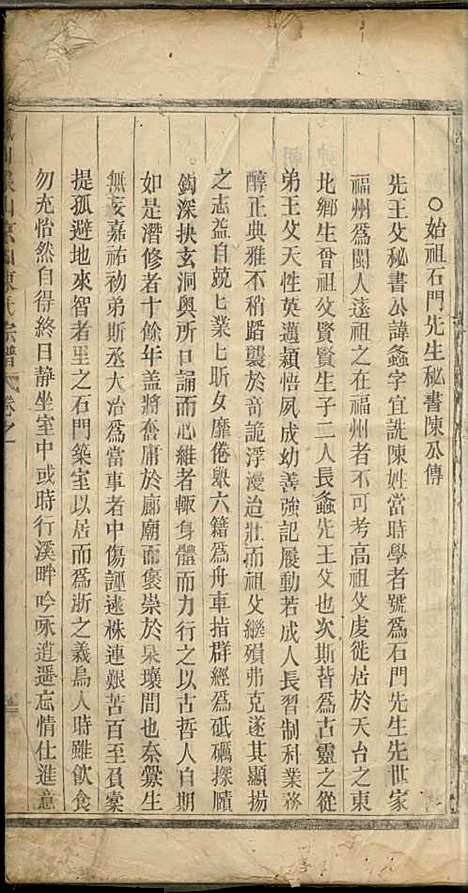 ○始祖石門先生秘書陳公傳
先王父秘書公諱螽字宜詵陳姓當時學者號爲石門先生先世家
福州爲閩人遠祖之在福州者不可考高祖父虔徙居於天台之東
北鄉生曾祖父賢賢生子二人長螽先王父也次斯皆爲古靈之從
弟王父天性英邁穎悟夙成幼善強記屐動若成人長習制科業務
醇正典雅不稍蹈襲於奇詭浮漫迨壯而祖父繼殞弗克遂其顯揚
之志益自兢匕業匕昕夕靡倦與六籍爲舟車指群經爲砥礪探賾
鈎深抉玄洞奥所口誦而心維者輒身體而力行之以古哲人自期
如是潛修者十餘年盖將奮庸於廊廟而褒崇於泉壤間也奈釁生
無妄嘉祐初弟斯丞大冶爲當事者中傷誣逮株連艱苦百至負橐
提孤避地來智者里之石門築室以居而爲浙之義烏人時雖飲食
勿充怡然自得終日静坐室中或時行溪畔吟咏逍遥忘情仕進意
宗譜 卷之一